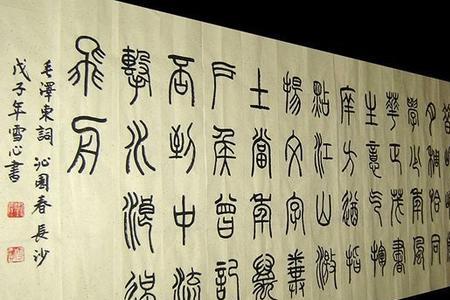 月稠恰同
學少年風
華正茂書
生意气揮
斥方遒指
點江山激
揚文字糞
土當年萬
戶侯曾記
否到中流
擊水浪遏
飛舟
毛澤東詞 沁園春 長沙
戊子年雪心書